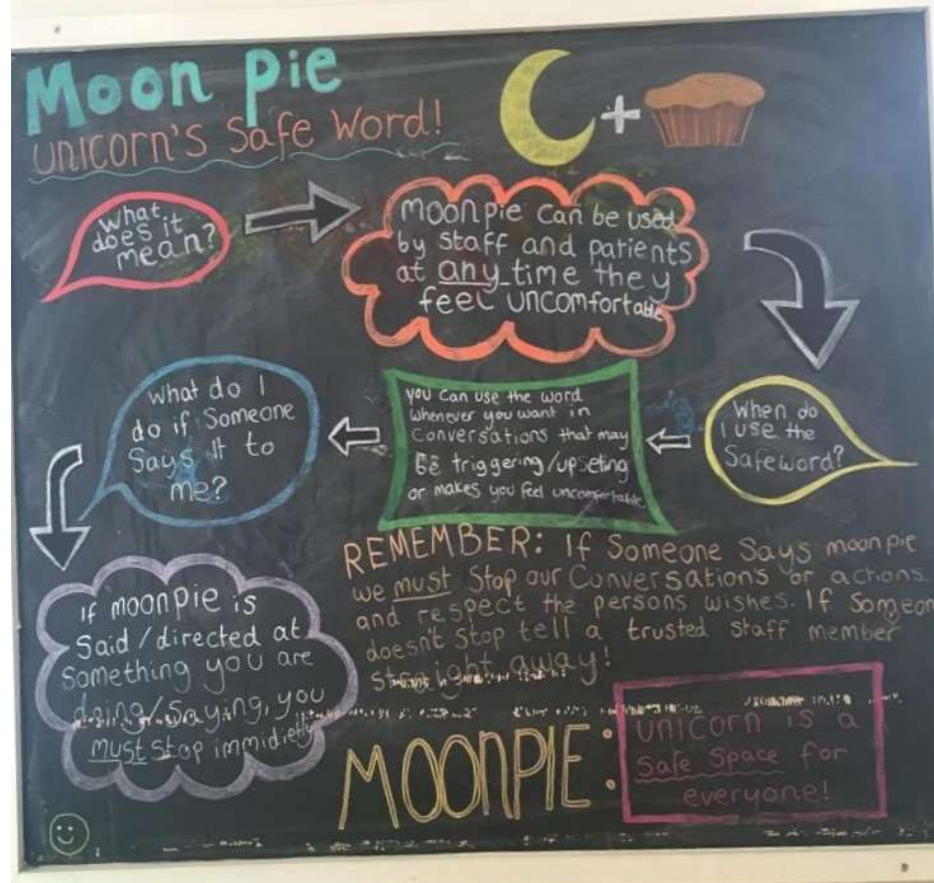 Moon Pie
UNICORN'S Safe Word!
+
What
does it
mean?
moonpie can be used
by staff and patients
at any time they
feel uncomfortable
When do
I use the
Safeword?
you can use the word
whenever you want in
Conversations that may
be triggering/upseting
or makes you feel uncomfortable
What do I
do if Someone
Says It to
me?
If moonpie is
Said/directed at
Something you are
doing/saying, you
must stop immidietly
REMEMBER: If Someone Says moonpie
we must Stop our Conversations or actions
and respect the persons wishes. If Someon
doesn't Stop tell a trusted staff member
straight away!
MOONPIE:
UNICORN is a
Safe Space for
everyone!